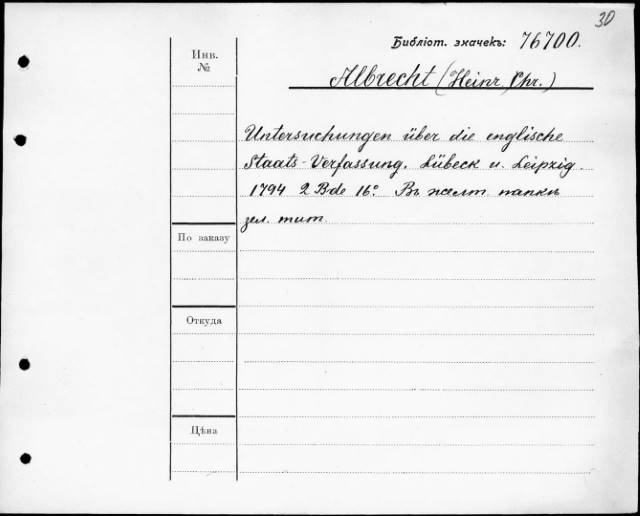 30
Библіот. значекъ: 76700.
Инв.
№
Albrecht (Heinr. Chr.)
Untersuchungen über die englische
Staats-Verfassung. Lübeck u. Leipzig.
1794 2 Bde 16º. Въ желт. папкѣ
зел. тит.
По заказу
Откуда
Цѣна